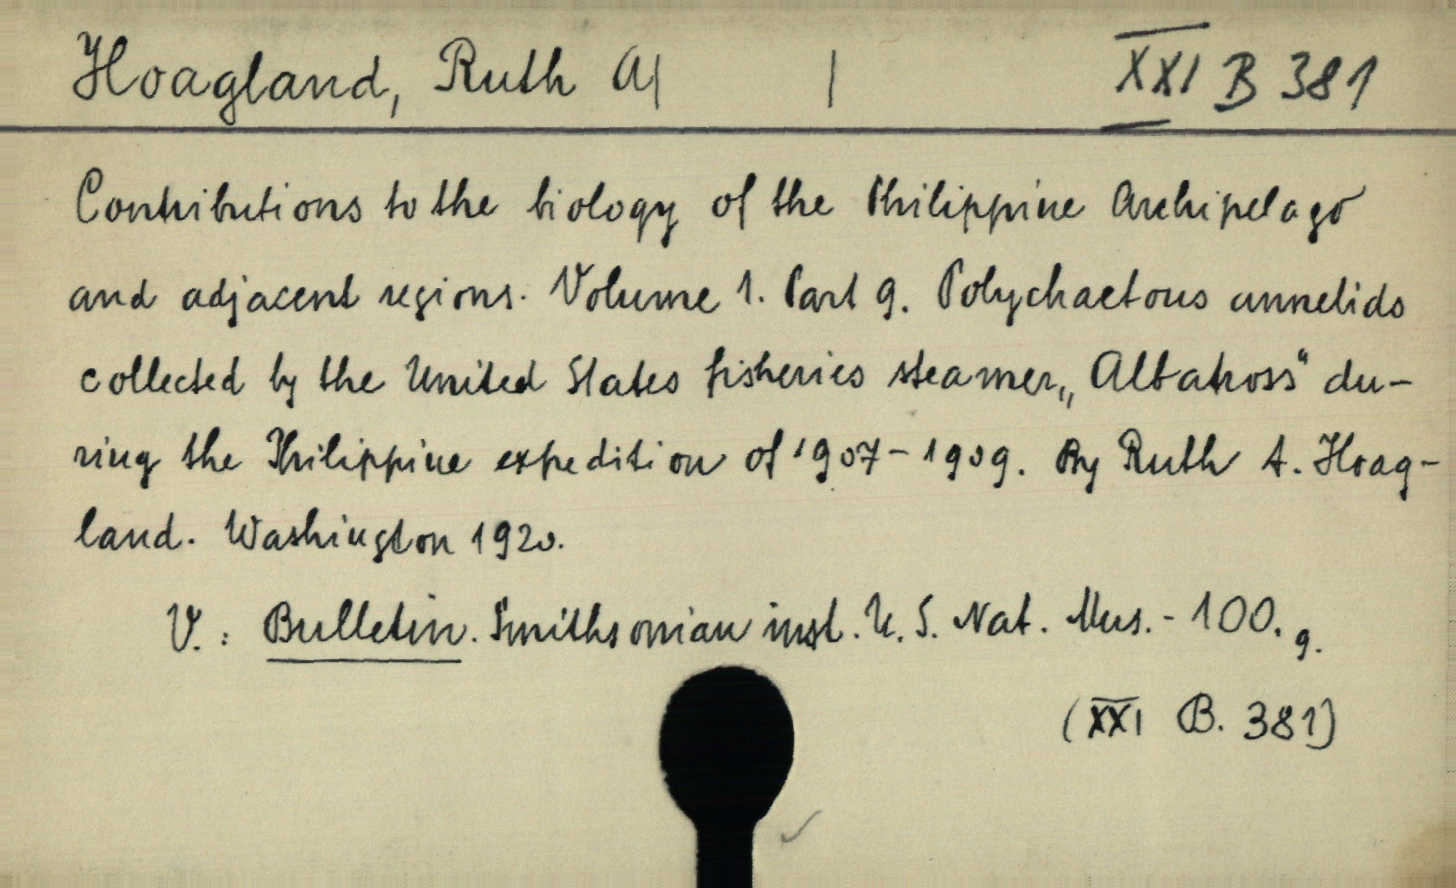 Hoagland, Ruth A| | XXI B 381
Contributions to the biology of the Philippine Archipelago
and adjacent regions. Volume 1. Part 9. Polychaetous annelids
collected by the United States fisheries steamer „Albatross“ du-
ring the Philippine expedition of 1907-1909. By Ruth A. Hoag-
land. Washington 1920.
V.: Bulletin. Smithsonian inst. U. S. Nat. Mus. - 100. 9.
(XXI B. 381)